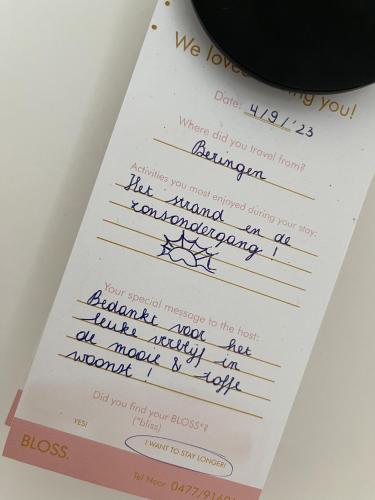 We loved
ng you!
Date: 4/9/'23
Where did you travel from?
Beringen
Activities you most enjoyed during your stay:
Het strand en de
zonsondergang !
Your special message to the host:
Bedankt voor het
leuke verblijf in
de mooie & toffe
woonst !
Did you find your BLOSS*?
(*bliss)
YES!
I WANT TO STAY LONGER!
BLOSS.
Tel Noor